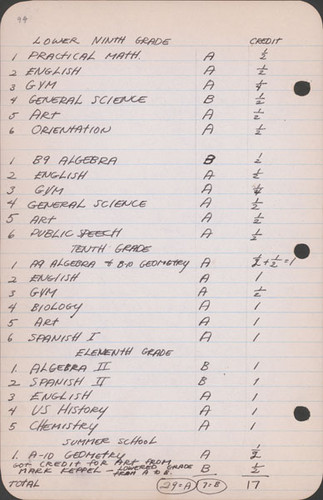 44
LOWER NINTH GRADE CREDIT
1 PRACTICAL MATH. A 1/2
2 ENGLISH A 1/2
3 GYM A 1/4
4 GENERAL SCIENCE B 1/2
5 ART A 1/2
6 ORIENTATION A 1/2
1 B9 ALGEBRA B 1/2
2 ENGLISH A 1/2
3 GYM A 1/4
4 GENERAL SCIENCE A 1/2
5 ART A 1/2
6 PUBLIC SPEECH A 1/2
TENTH GRADE
1 A9 ALGEBRA & B10 GEOMETRY A 1/2 + 1/2 = 1
2 ENGLISH A 1
3 GYM A 1/2
4 BIOLOGY A 1
5 ART A 1
6 SPANISH I A 1
ELEVENTH GRADE
1. ALGEBRA II B 1
2 SPANISH II B 1
3 ENGLISH A 1
4 US HISTORY A 1
5 CHEMISTRY A 1
SUMMER SCHOOL
1. A-10 GEOMETRY A 1/2
GOT CREDIT FOR ART FROM
MARK KEPPEL - LOWERED GRADE FROM A TO B. B 1/2
TOTAL 29=A 7=B 17